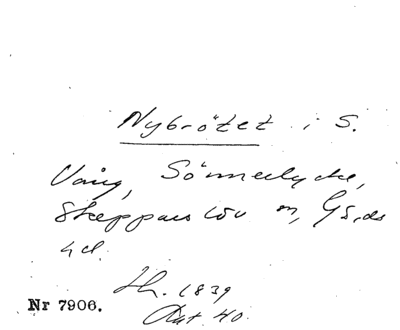 Nybrötet i S.
Vång, Sönnerlycke,
Skepparslöv sn, Gärds
hd.
Lh. 1839
Akt. 40.
Nr 7906.